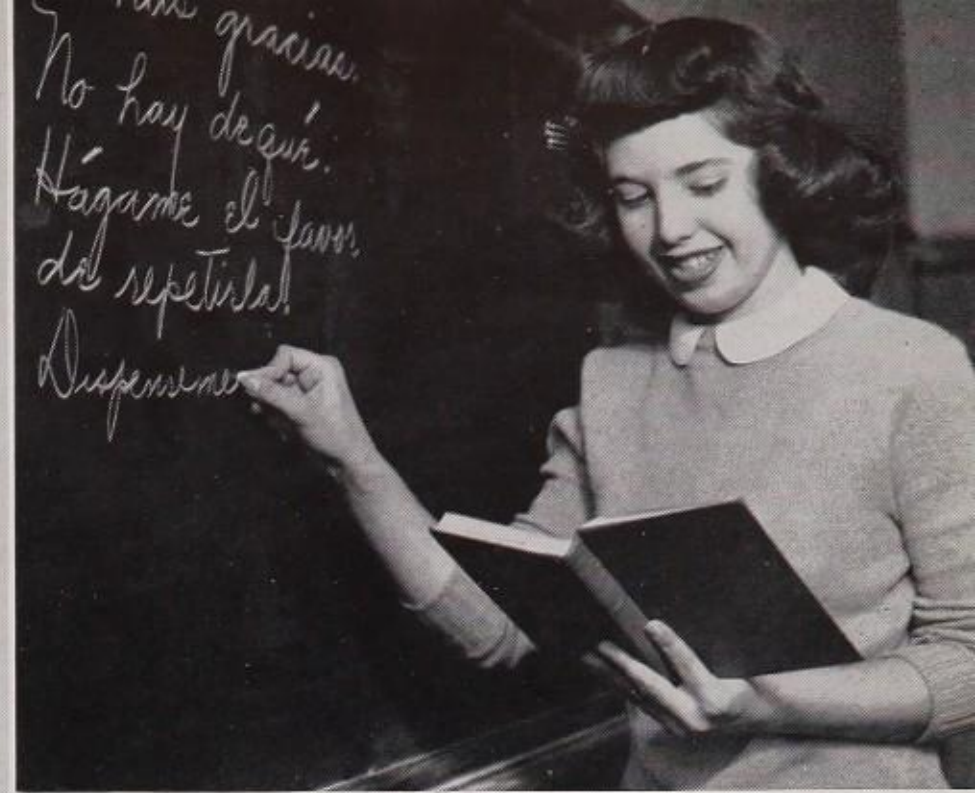 gracias.
No hay de qué.
Hágame el favor
de repetirla.
Dispenseme